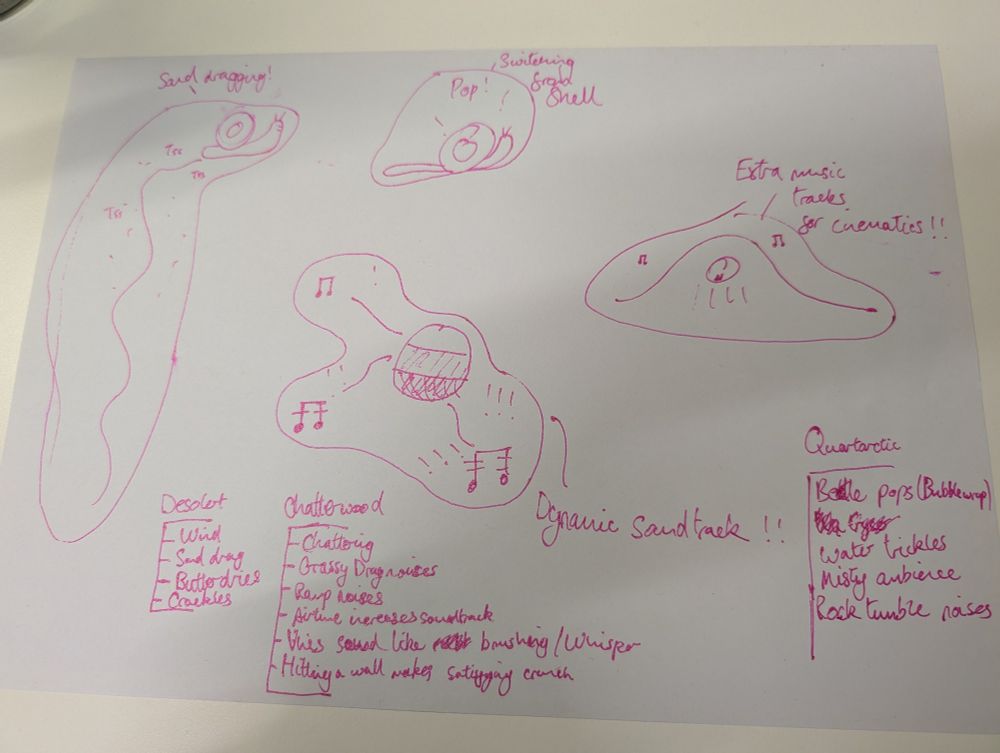 Sand dragging!
Tss
Tss
Tss
Pop!
Switering
from
shell
Extra music
tracks
for cinematics!!
Dynamic soundtrack !!
Desolet
- Wind
- Sand drag
- Butterdries
- Crackles
Chatterwood
- Chattering
- Grassy Drag noises
- Ramp noises
- Airtime increases soundtrack
- Vines sound like brushing/Whisper
- Hitting a wall makes satisfying crunch
Quartarctic
pops (Bubblewrap)
Water trickles
Misty ambience
Rock tumble noises